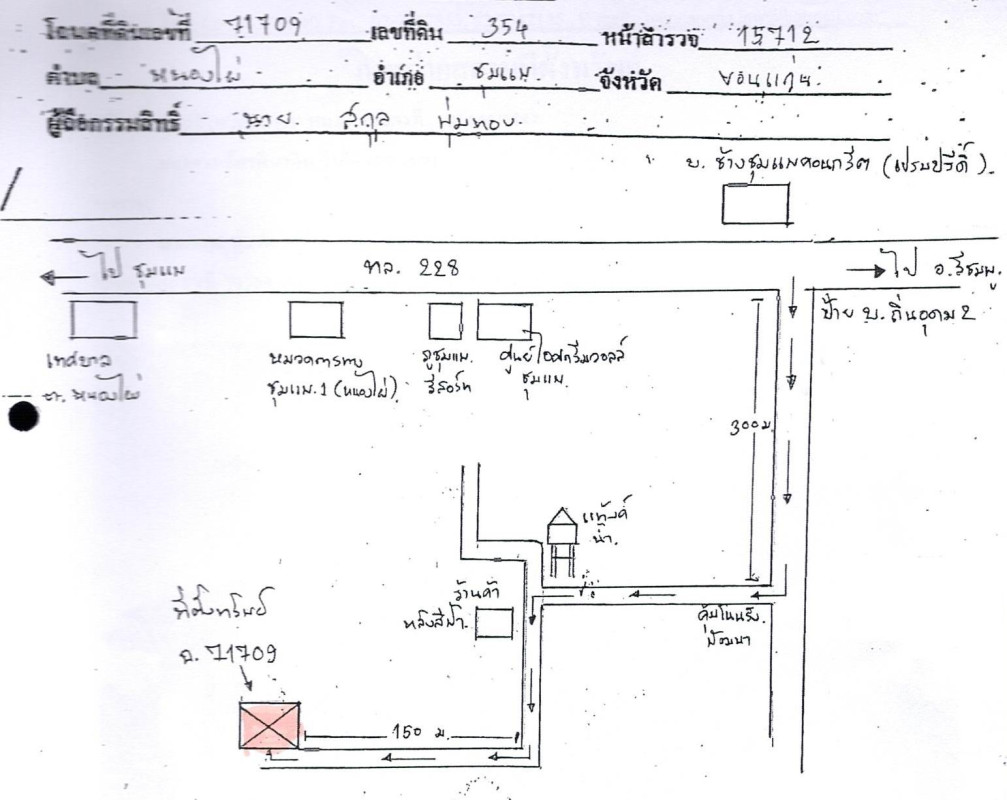 โฉนดที่ดินเลขที่ 71709 เลขที่ดิน 354 หน้าสำรวจ 15712
ตำบล หนองไผ่ อำเภอ ชุมแพ จังหวัด ขอนแก่น
ผู้ถือกรรมสิทธิ์ นาย สกุล พุ่มทอง
บ. ช้างชุมแพคอนกรีต (เปรมปรีดิ์).
ไป ชุมแพ ทล. 228 ไป อ.สีชมพู.
ป้าย บ. ถิ่นอุดม 2
เทศบาล
ต. หนองไผ่
หมวดการทาง
ชุมแพ.1 (หนองไผ่)
ภูชุมแพ.
รีสอร์ท
ศูนย์ไอศกรีมวอลล์
ชุมแพ.
300 ม.
แท้งค์
น้ำ.
ร้านค้า
หลังสีฟ้า.
คุ้มโนนรัง.
พัฒนา
ที่ตั้งทรัพย์
ฉ. 71709
150 ม.